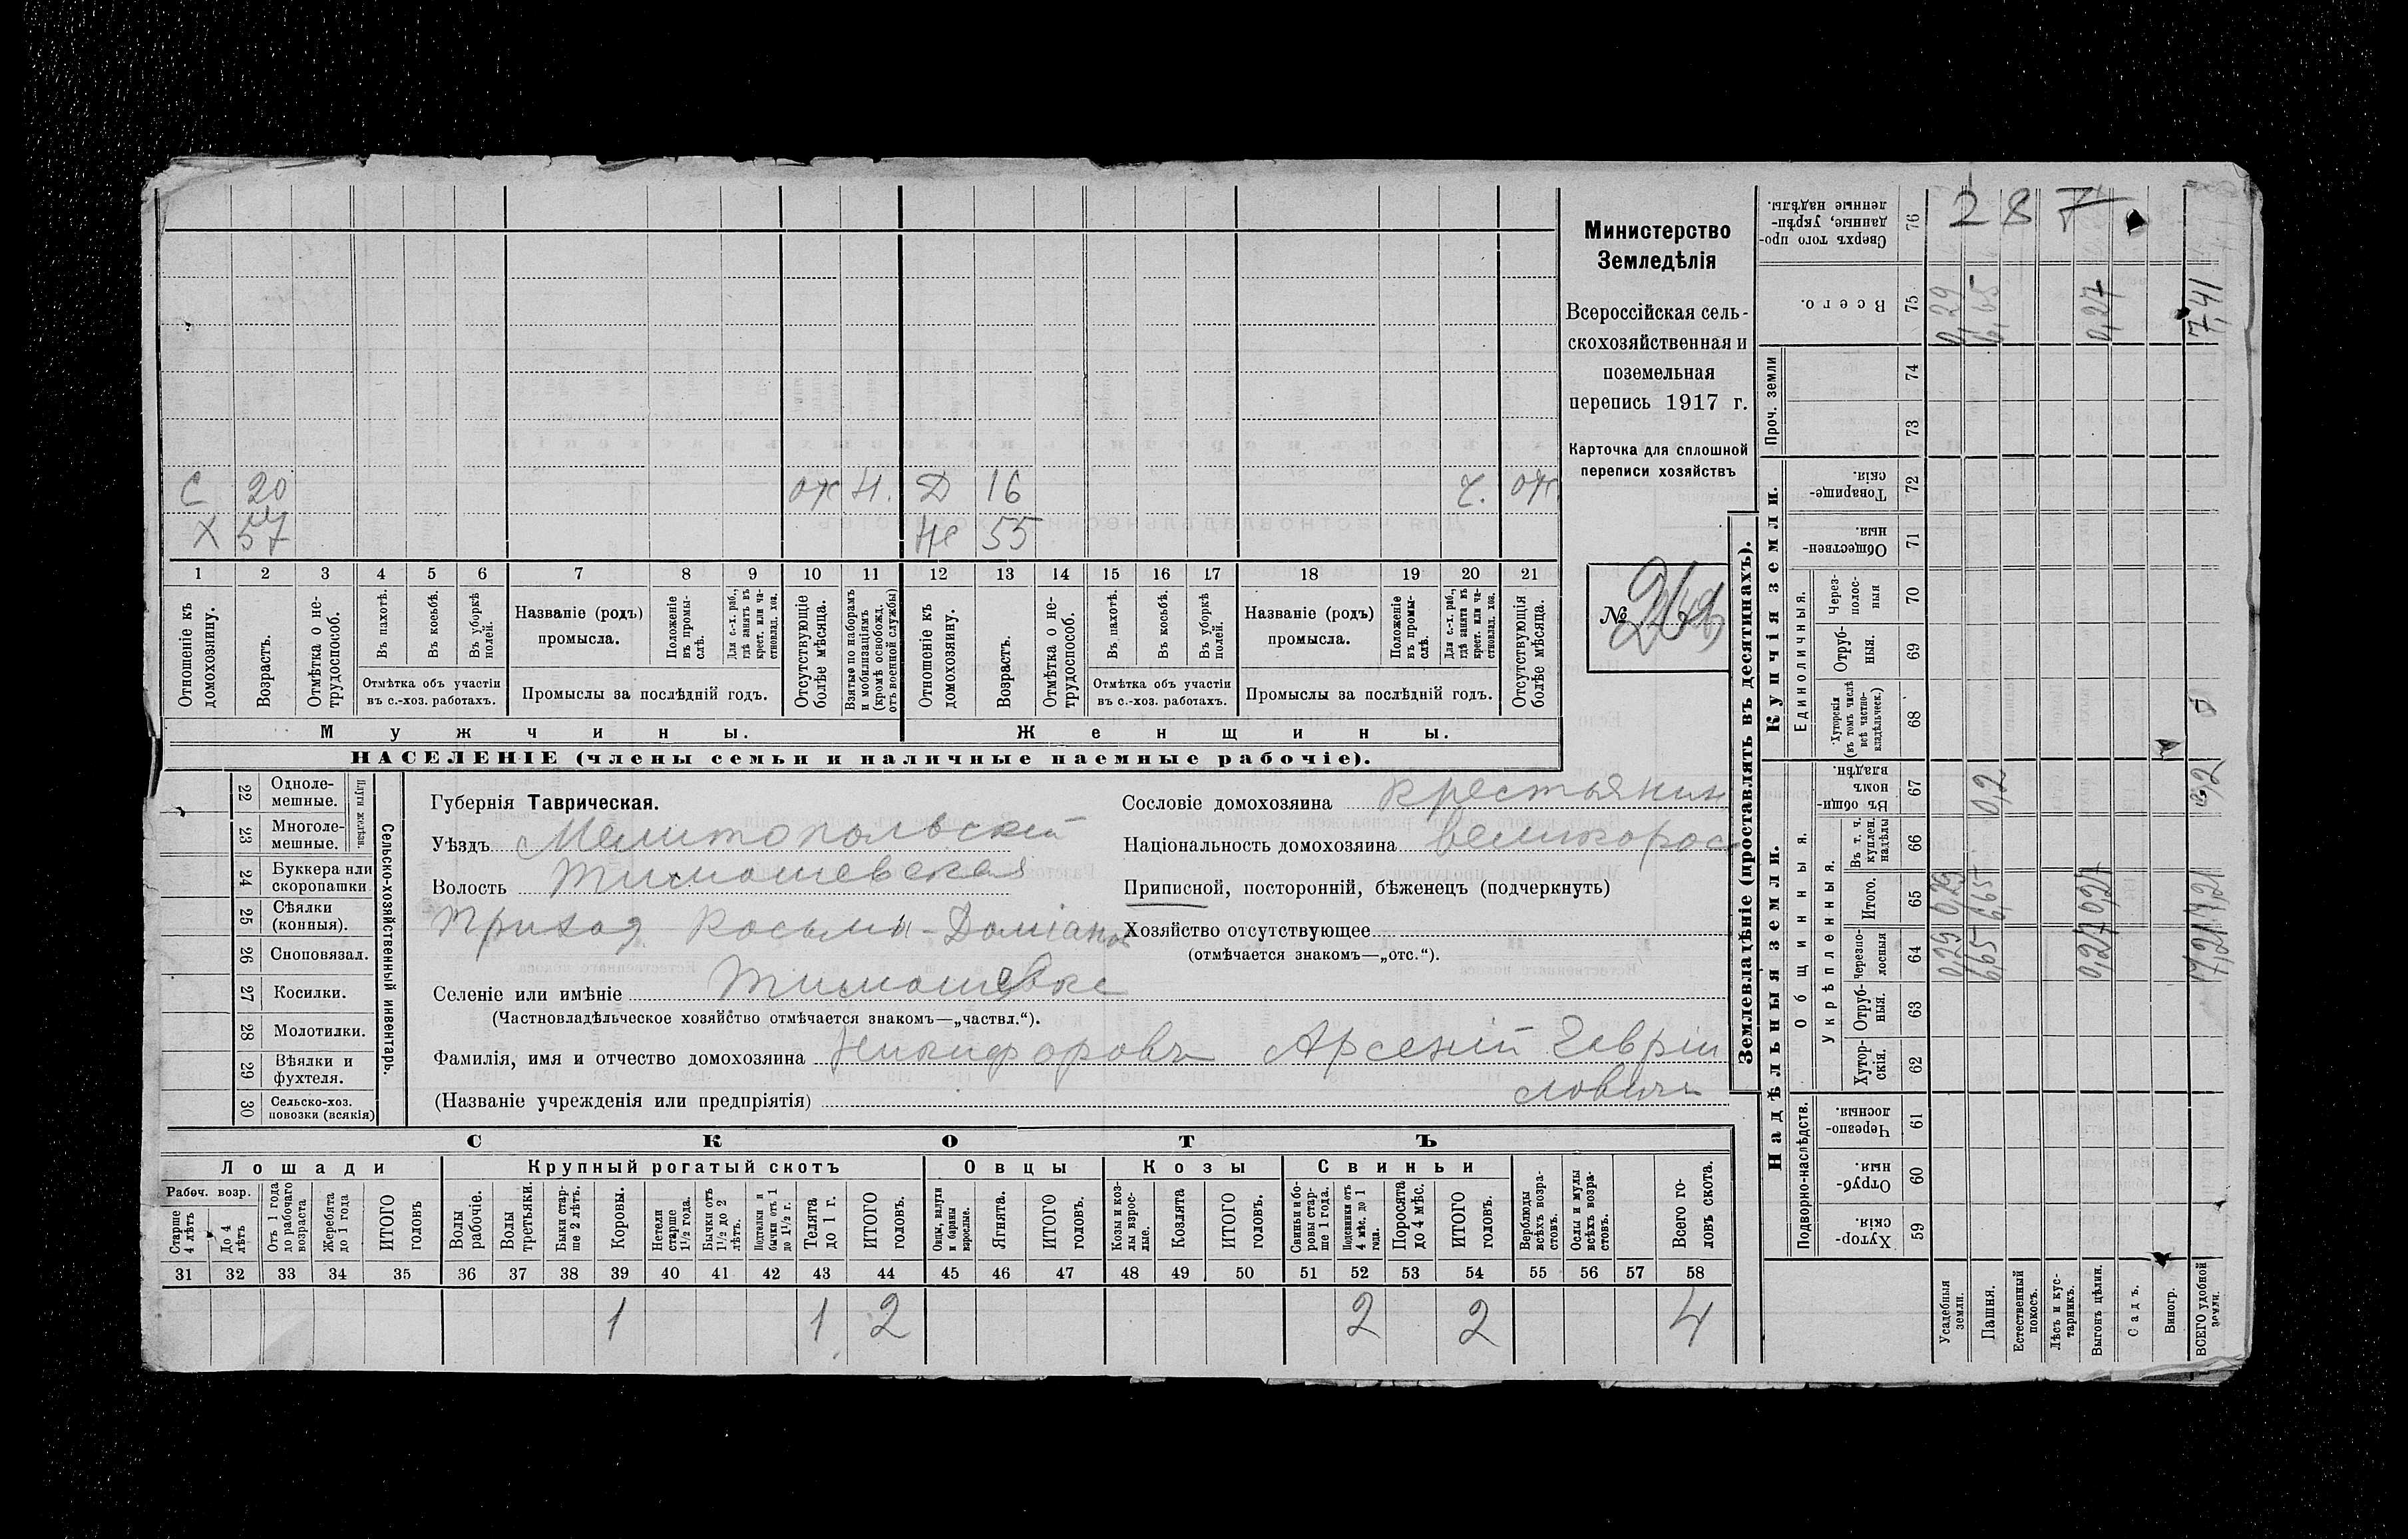 С 20 отс Н. Д 16 ч. отс.
Х 57 Же 55
1 2 3 4 5 6 7 8 9 10 11 12 13 14 15 16 17 18 19 20 21
Отношеніе къ домохозяину.
Возрастъ.
Отмѣтка о нетрудоспособ.
Въ пахотѣ.
Въ косьбѣ.
Въ уборкѣ полей.
Отмѣтка объ участіи
въ с.-хоз. работахъ.
Названіе (родъ)
промысла.
Положеніе въ промыслѣ.
Для с.-х. раб., гдѣ занятъ въ крест. или частновлад. хоз.
Промыслы за послѣдній годъ.
Отсутствующіе болѣе мѣсяца.
Взятые по наборамъ и мобилизаціямъ (кромѣ освобожд. отъ военной службы)
Отношеніе къ домохозяину.
Возрастъ.
Отмѣтка о нетрудоспособ.
Въ пахотѣ.
Въ косьбѣ.
Въ уборкѣ полей.
Отмѣтка объ участіи
въ с.-хоз. работахъ.
Названіе (родъ)
промысла.
Положеніе въ промыслѣ.
Для с.-х. раб., гдѣ занята въ крест. или частновлад. хоз.
Промыслы за послѣдній годъ.
Отсутствующія болѣе мѣсяца.
Мужчины. Женщины.
НАСЕЛЕНІЕ (члены семьи и наличные наемные рабочіе).
Министерство
Земледѣлія
Всероссійская сель-
скохозяйственная и
поземельная
перепись 1917 г.
Карточка для сплошной
переписи хозяйствъ
№
Сельско-хозяйственный инвентарь.
Плуги желѣзн.
22 Одноле-
мешные.
23 Многоле-
мешные.
24 Буккера или
скоропашки
25 Сѣялки
(конныя).
26 Сноповязал.
27 Косилки.
28 Молотилки.
29 Вѣялки и
фухтеля.
30 Сельско-хоз.
повозки (всякія)
Губернія Таврическая.
Уѣздъ Мелитопольскій
Волость Тимошевская
Приход Косьмы-Доміана
Селеніе или имѣніе Тимошевка
(Частновладѣльческое хозяйство отмѣчается знакомъ—„частвл.“).
Фамилія, имя и отчество домохозяина Никифоровъ Арсеній Гавріи
ловичъ
(Названіе учрежденія или предпріятія)
Сословіе домохозяина крестьянин
Національность домохозяина великорос
Приписной, посторонній, бѣженецъ (подчеркнуть)
Хозяйство отсутствующее
(отмѣчается знакомъ—„отс.“).
СКОТЪ
Лошади Крупный рогатый скотъ Овцы Козы Свиньи
Рабоч. возр.
Старше 4 лѣтъ
До 4 лѣтъ
Отъ 1 года до рабочаго возраста
Жеребята до 1 года
ИТОГО головъ
Волы рабочіе.
Волы третьяки.
Быки старше 2 лѣтъ.
Коровы.
Нетели старше 1½ года.
Бычки отъ 1½ до 2 лѣтъ.
Подтелки и бычки отъ 1 до 1½ г.
Телята до 1 г.
ИТОГО головъ.
Овцы, валухи и бараны взрослые.
Ягнята.
ИТОГО головъ.
Козы и козлы взрослые.
Козлята
ИТОГО головъ.
Свиньи и боровы старше 1 года.
Подсвинки отъ 4 мѣс. до 1 года.
Поросята до 4 мѣс.
ИТОГО головъ.
Верблюды всѣхъ возрастовъ.
Ослы и мулы всѣхъ возрастовъ.
Всего головъ скота.
31 32 33 34 35 36 37 38 39 40 41 42 43 44 45 46 47 48 49 50 51 52 53 54 55 56 57 58
1 1 2 2 2 4
Землевладѣніе (проставлять въ десятинахъ).
Купчія земли.
Надѣльныя земли.
287
Сверхъ того проданные, укрѣпленные надѣлы. 76
Всего. 75 0,29 6,85 0,27 7,41
Проч. земли 74
73
Товарищескія. 72
Общественныя. 71
Единоличныя.
Черезполосныя 70
Отрубныя. 69
Хуторскія (въ томъ числѣ всѣ частновладѣльческ.) 68
Общинныя.
Въ общинномъ владѣн. 67 0,2 0,2
Укрѣпленныя.
Въ т. ч. куплен. надѣлы 66
Итого. 65 0,29 6,65 0,27 7,21
Черезполосныя 64 0,29 6,65 0,27 7,21
Отрубныя. 63
Хуторскія. 62
Подворно-наслѣдств.
Черезполосныя. 61
Отрубныя. 60
Хуторскія. 59
Усадебныя земли.
Пашня.
Естественный покосъ.
Лѣсъ и кустарникъ.
Выгонъ цѣлин.
Садъ.
Виногр.
ВСЕГО удобной земли.